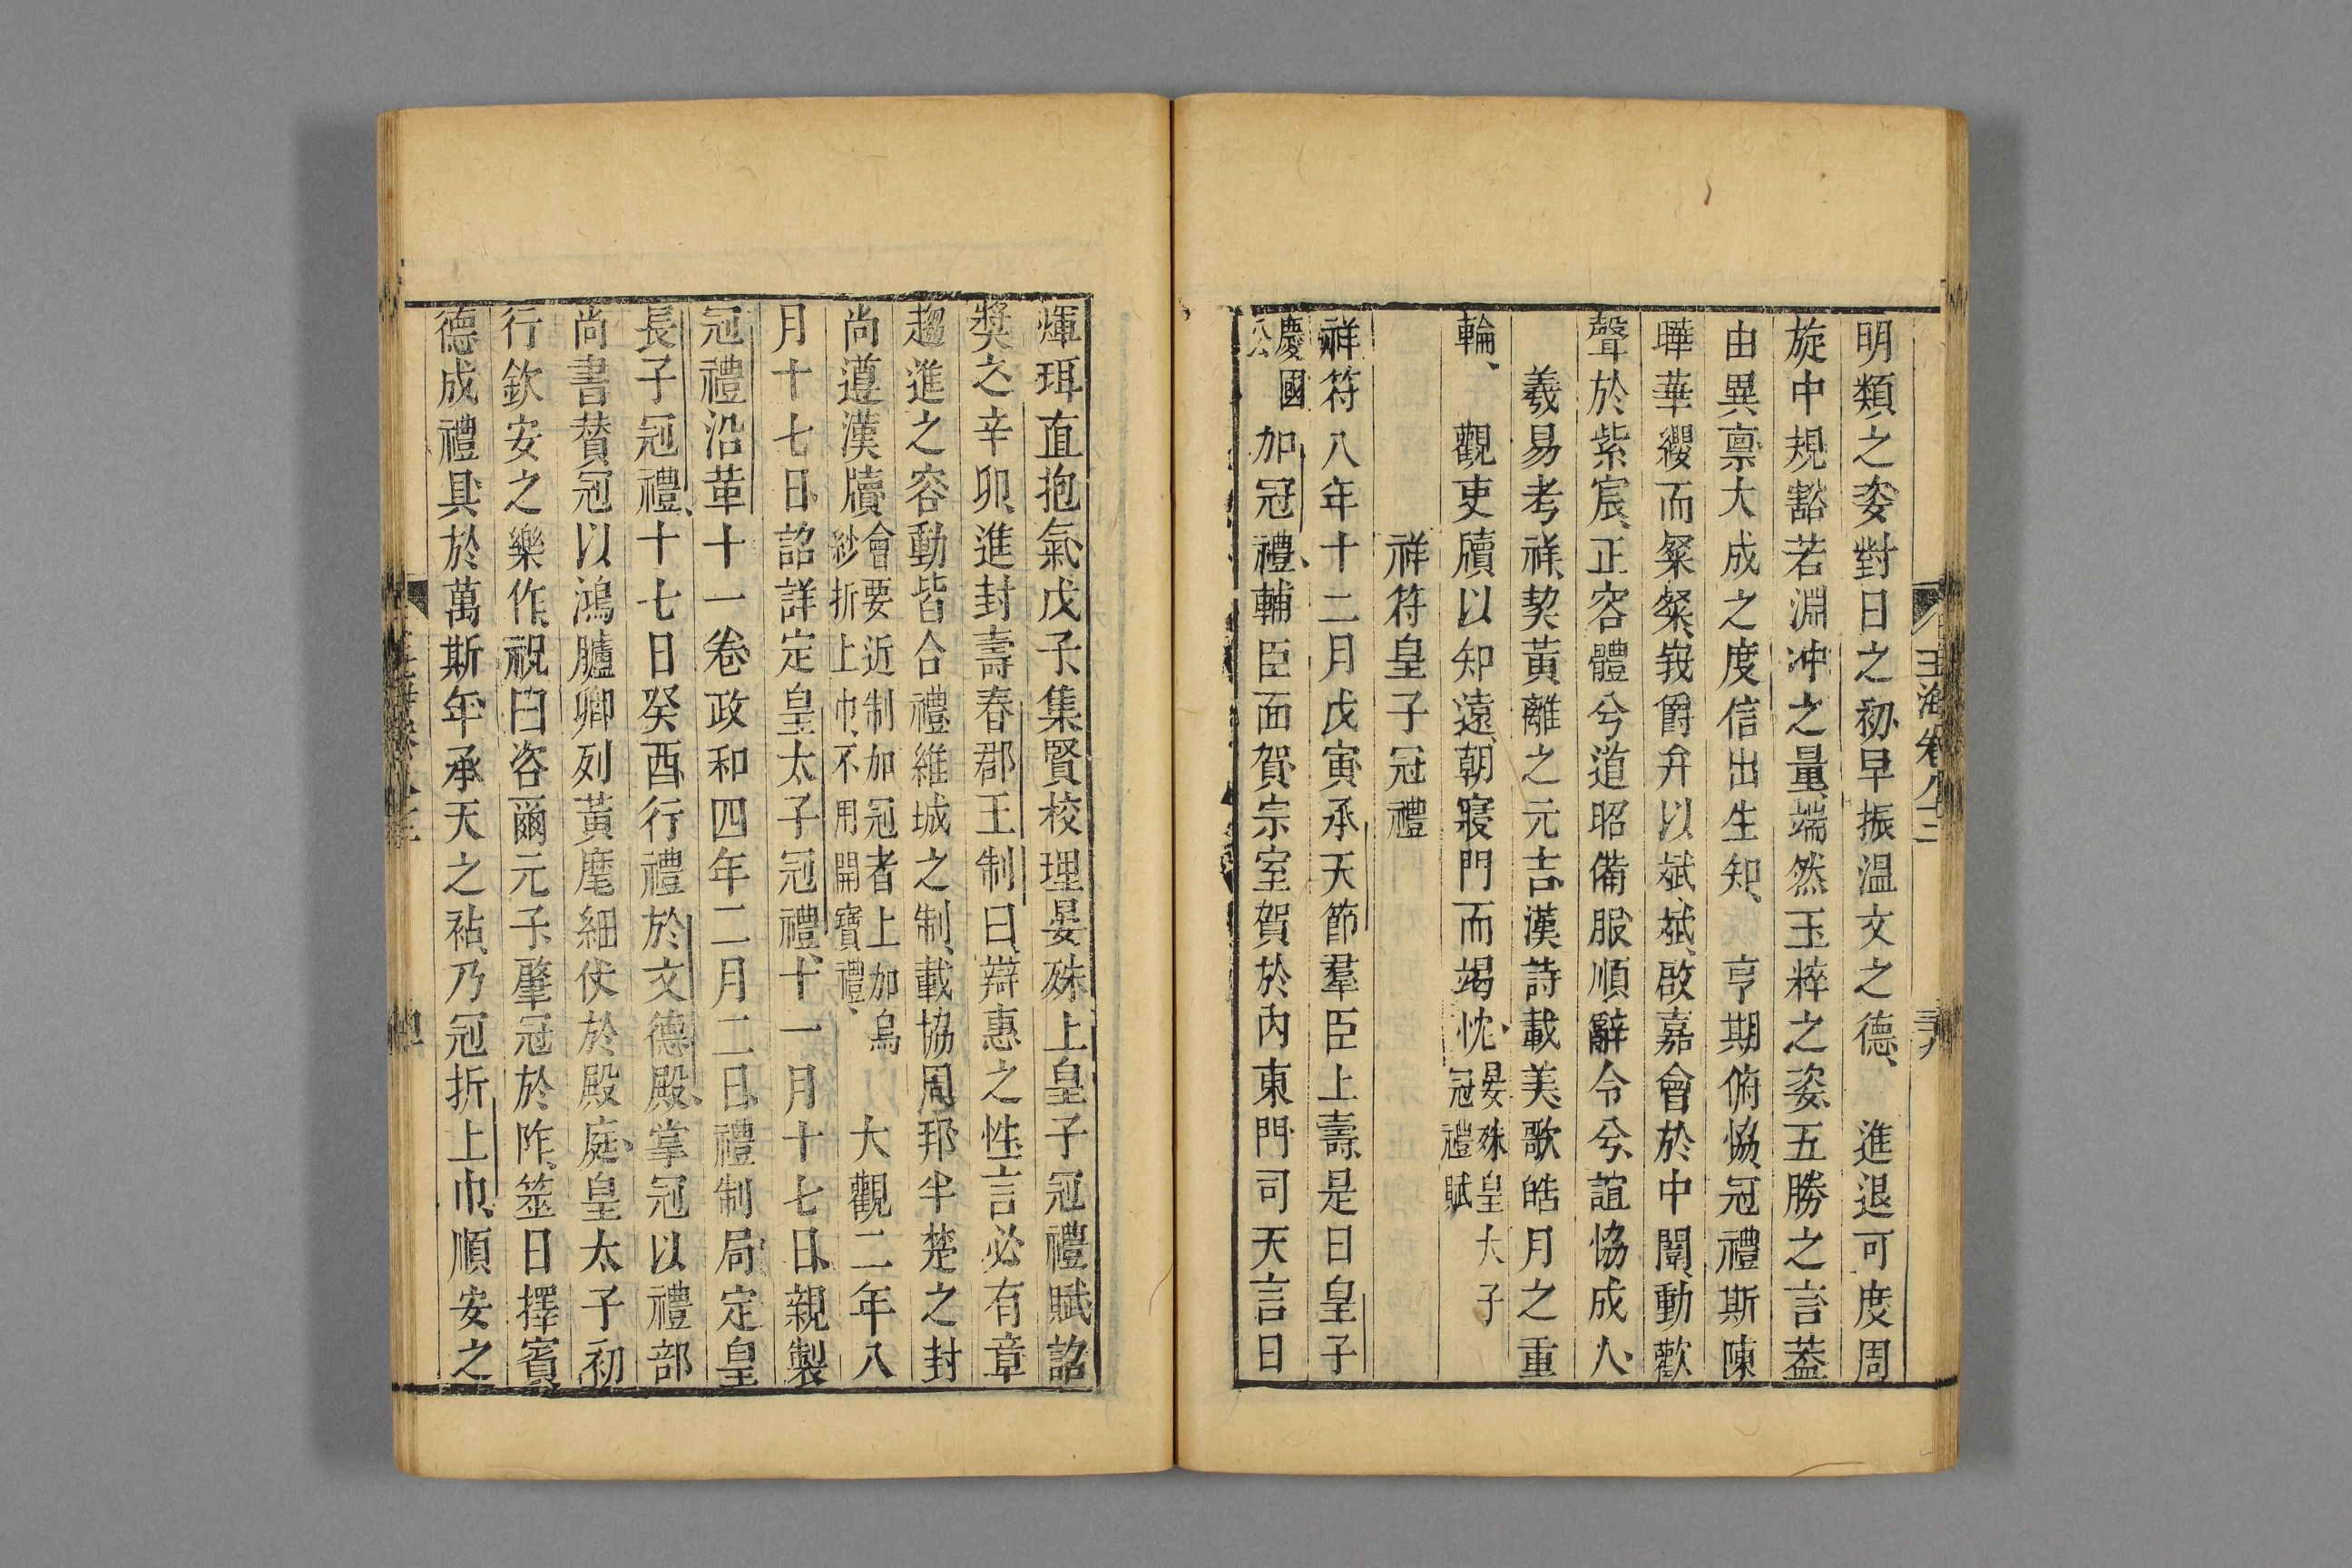 明類之姿對日之初早振溫文之德、進退可度周
旋中規豁若淵冲之量端然玉粹之姿五勝之言葢
由異禀大成之度信出生知、亨期俯協冠禮斯陳
曄華纓而粲粲峩爵弁以斌斌啟嘉會於中闈動歡
聲於紫宸、正容體兮道昭備服順辭令兮誼協成人
羲易考祥契黃離之元吉漢詩載美歌皓月之重
輪、觀吏牘以知遠朝寢門而竭忱、晏殊皇太子冠禮賦
祥符皇子冠禮
祥符八年十二月戊寅承天節羣臣上壽是日皇子
慶國公加冠禮、輔臣面賀宗室賀於內東門司天言日
煇珥直抱氣戊子集賢校理晏殊上皇子冠禮賦詔
獎之辛卯進封壽春郡王制曰、辯惠之性言必有章
趨進之容動皆合禮維城之制、載協周邦半楚之封
尚遵漢牘會要近制加冠者上加烏紗折上巾、不用開寶禮、大觀二年八
月十七日詔詳定皇太子冠禮、十一月十七日親製
冠禮沿革十一卷政和四年二月二日禮制局定皇
長子冠禮、十七日癸酉行禮於文德殿、掌冠以禮部
尚書賛冠以鴻臚卿列黃麾細仗於殿庭皇太子初
行欽安之樂作、祝曰咨爾元子肇冠於阼、筮日擇賓
德成禮具於萬斯年承天之祜、乃冠折上巾、順安之
玉海卷八十二